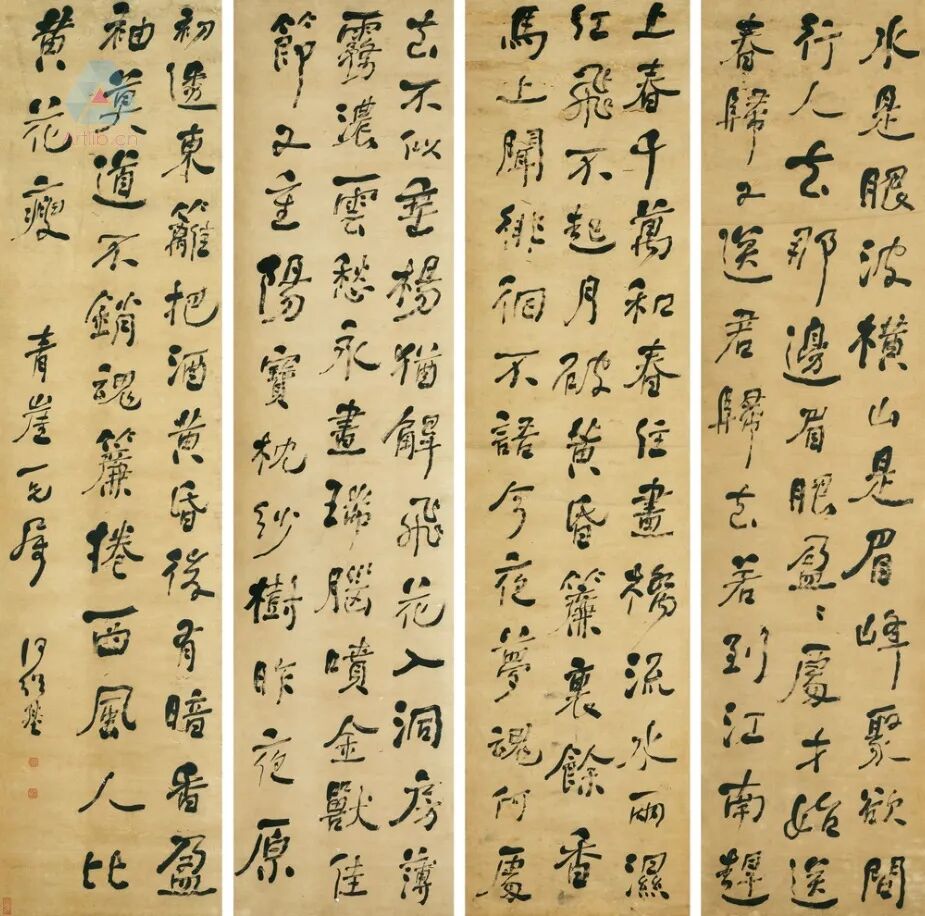 水是眼波橫山是眉峰聚欲問
行人去那邊眉眼盈〻處才始送
春歸又送君歸去若到江南趕
上春千萬和春住畫橋流水雨濕
紅飛不起月破黃昏簾裏餘香
馬上聞徘徊不語今夜夢魂何處
去不似垂楊猶解飛花入洞房薄
霧濃雲愁永晝瑞腦噴金獸佳
節又重陽寶枕紗樹昨夜原
初透東籬把酒黃昏後有暗香盈
袖莫道不銷魂簾捲西風人比
黃花瘦
青崖一兄屬
何紹基
Artlib.cn